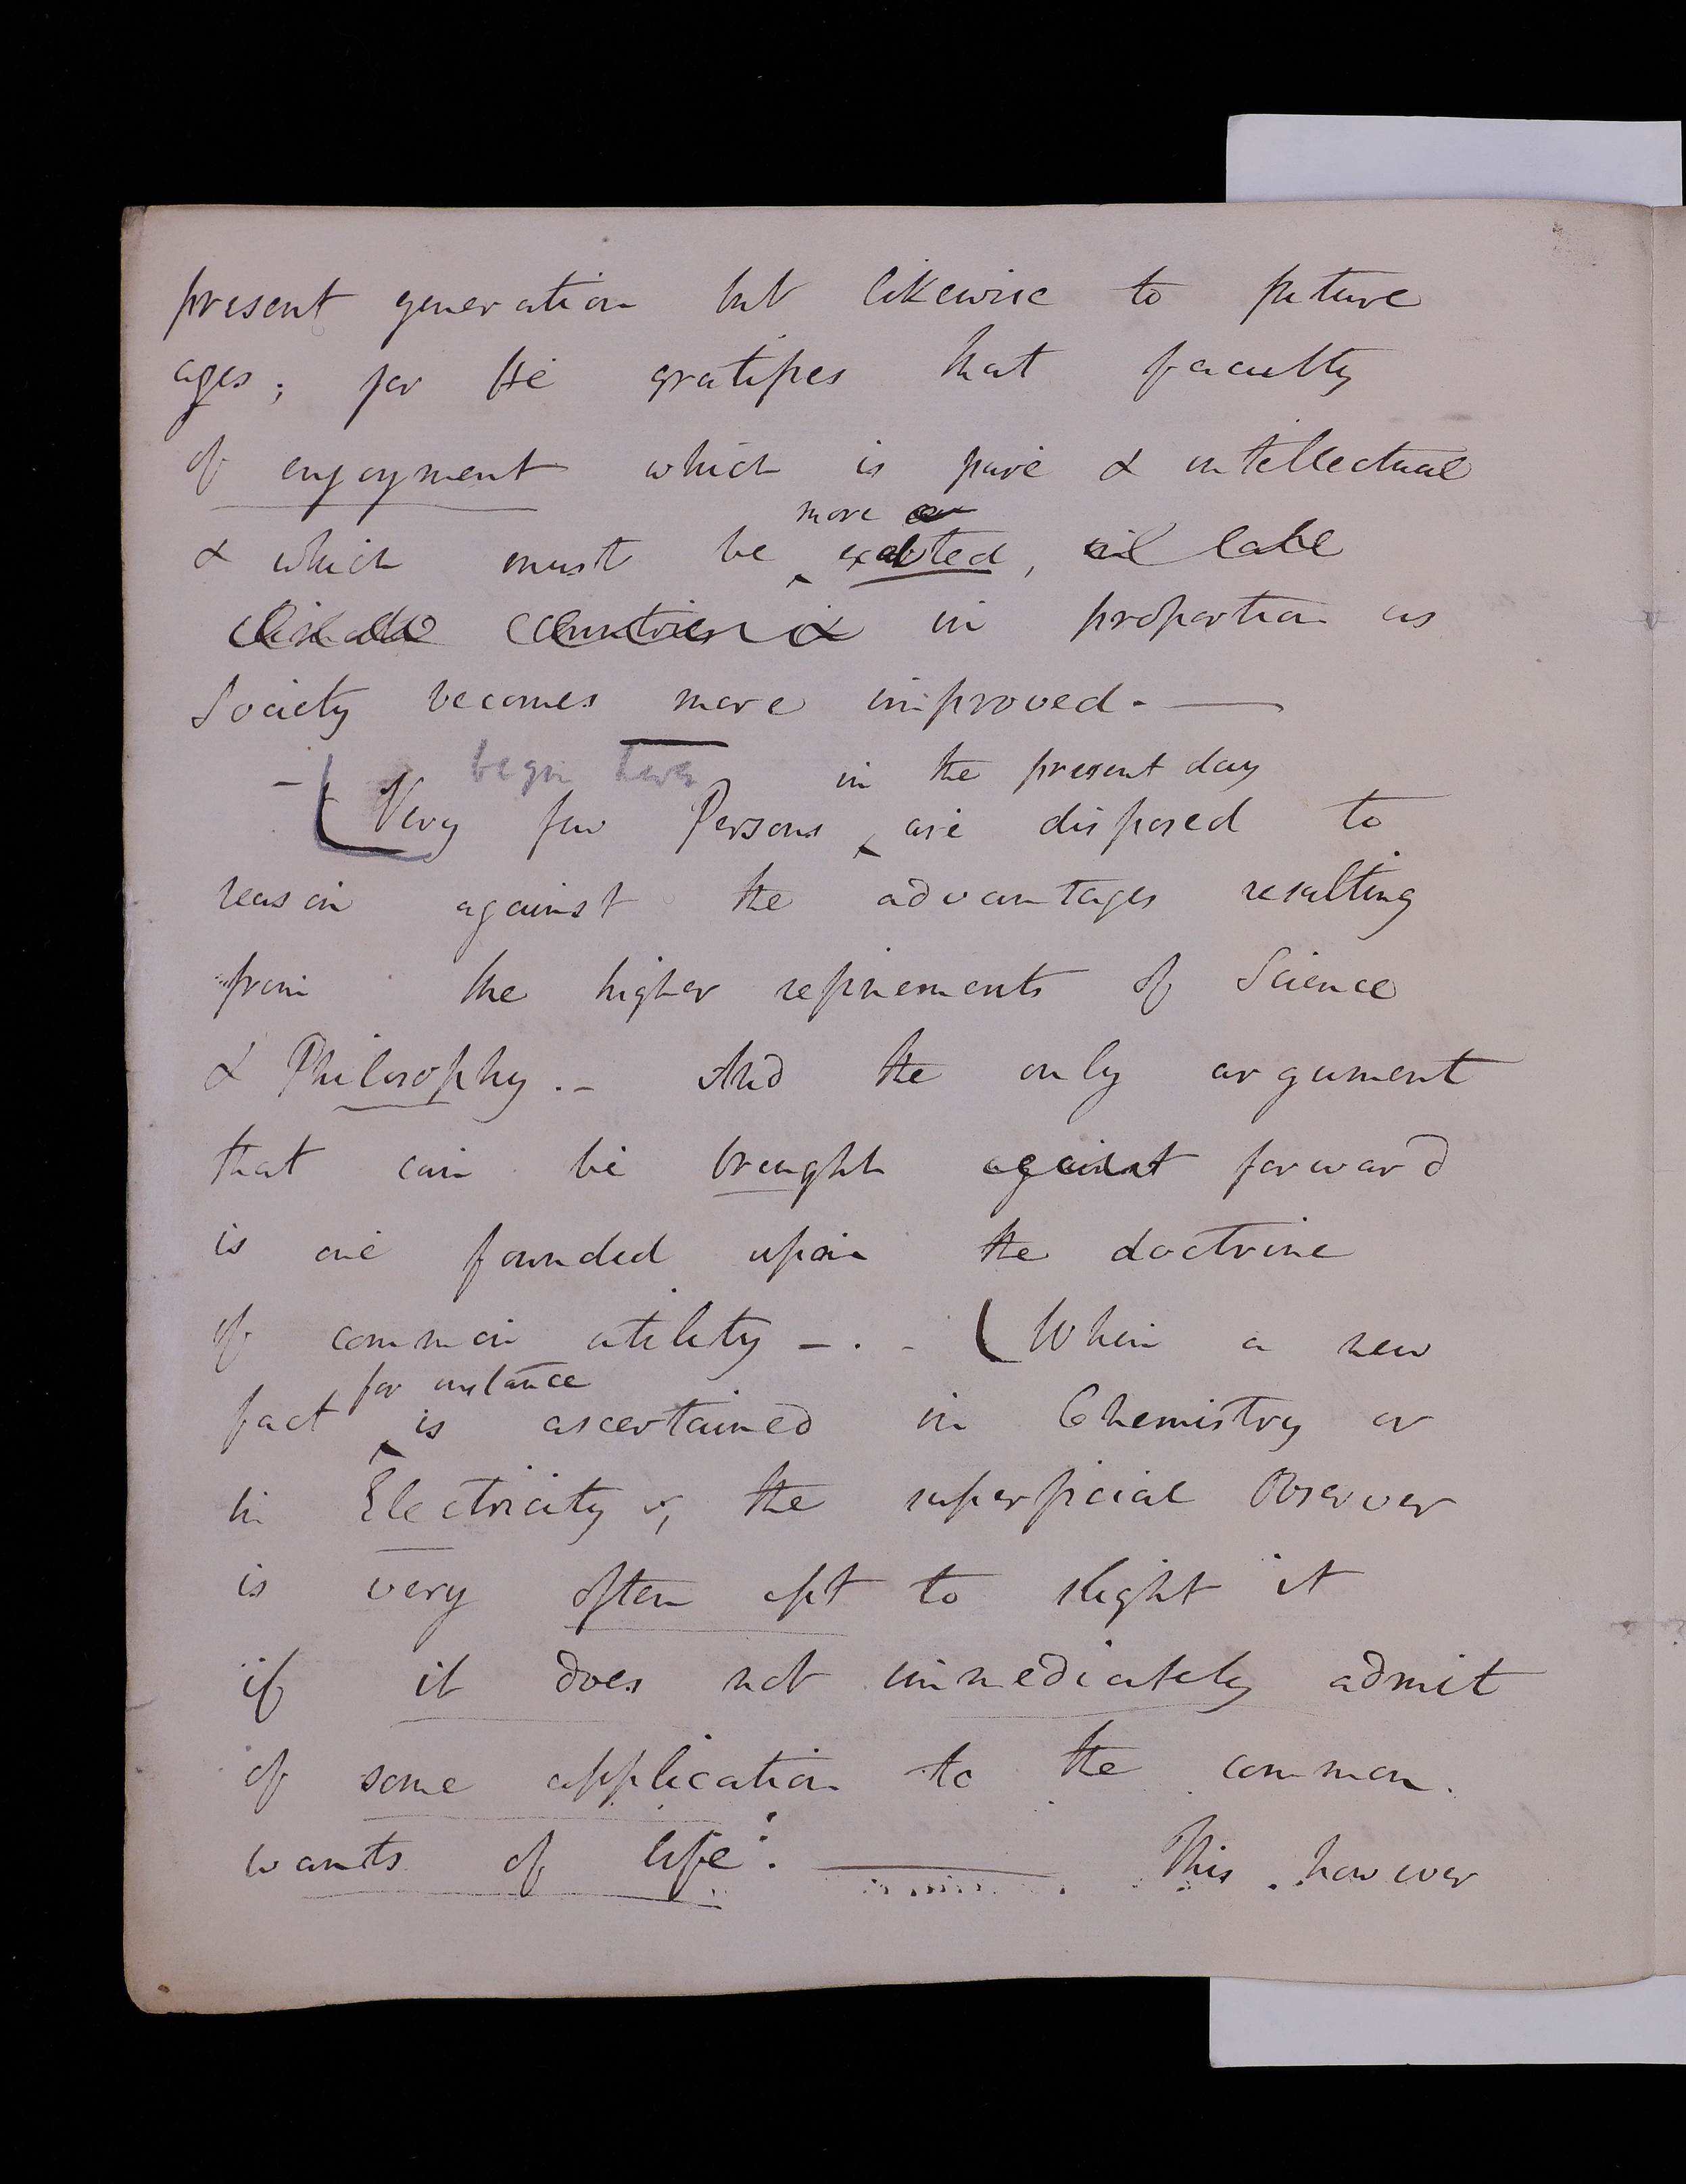 present generation but likewise to future
ages; for He gratifies that faculty
of enjoyment which is pure & intellectual
more or
& which must be exalted, in
& in proportion as
Society becomes more improved. -
begin here
in the present day
- Very few Persons are disposed to
reason against the advantages resulting
from the higher refinements of Science
& Philosophy. - And the only argument
that can be brought against forward
is one founded upon the doctrine
of common utility - . - ( When a new
for instance
fact is ascertained in Chemistry or
in Electricity, the superficial Observer
is very often apt to slight it
if it does not immediately admit
of some application to the common
wants of life: This however